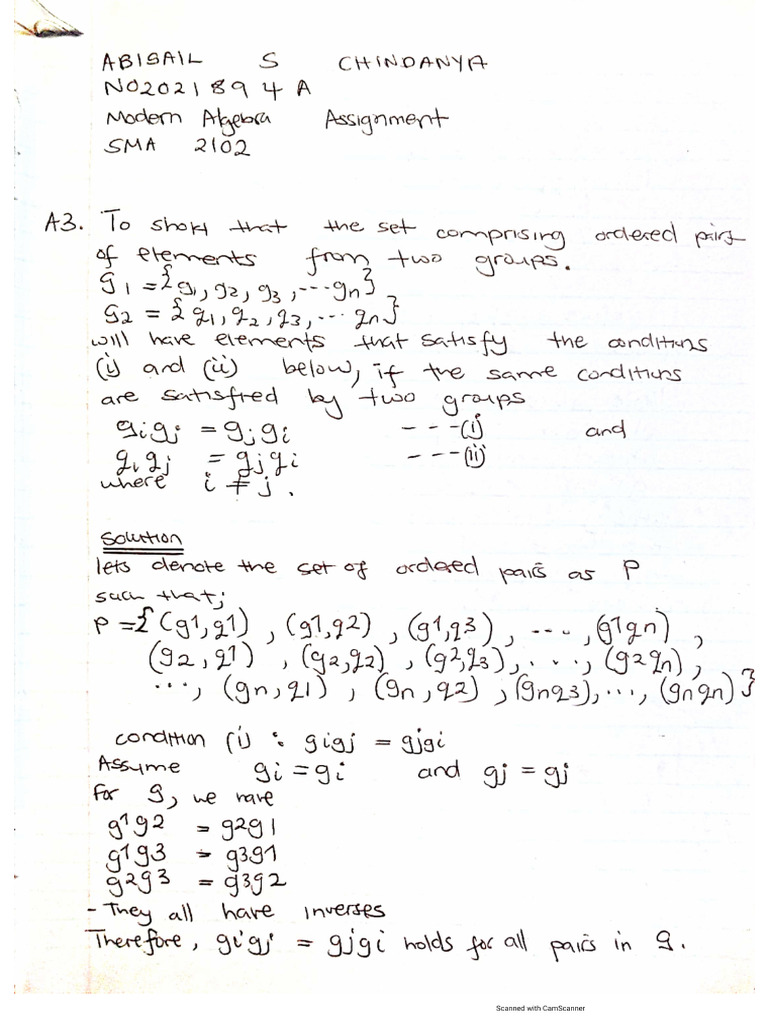 ABIGAIL S CHINDANYA
N02021894A
Modern Algebra Assignment
SMA 2102
A3. To show that the set comprising ordered pairs
of elements from two groups.
g1 = {g1, g2, g3, ... gn}
g2 = {q1, q2, q3, ... qn}
will have elements that satisfy the conditions
(i) and (ii) below, if the same conditions
are satisfied by two groups
gigj = gjgi ---(i) and
qiqj = qjqi ---(ii)
where i ≠ j.
Solution
lets denote the set of ordered pairs as P
such that;
P = {(g1,q1), (g1,q2), (g1,q3), ..., (g1qn),
(g2,q1), (g2,q2), (g2,q3), ..., (g2qn),
..., (gn,q1), (gn,q2), (gnq3), ..., (gnqn)}
condition (i) : gigj = gjgi
Assume gi = gi and gj = gj
for g, we have
g1g2 = g2g1
g1g3 = g3g1
g2g3 = g3g2
- They all have inverses
Therefore, gigj = gjgi holds for all pairs in g.
Scanned with CamScanner